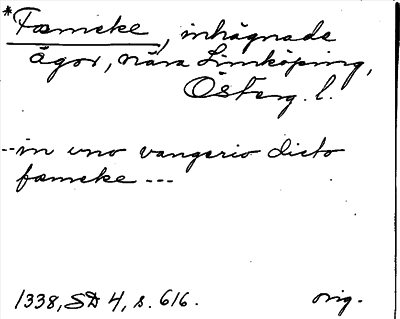 *Fæmcke, inhägnade
ägor, nära Linköping,
Österg. l.
--in uno vangerio dicto
fæmcke ---
1338, SD 4, s. 616. orig.